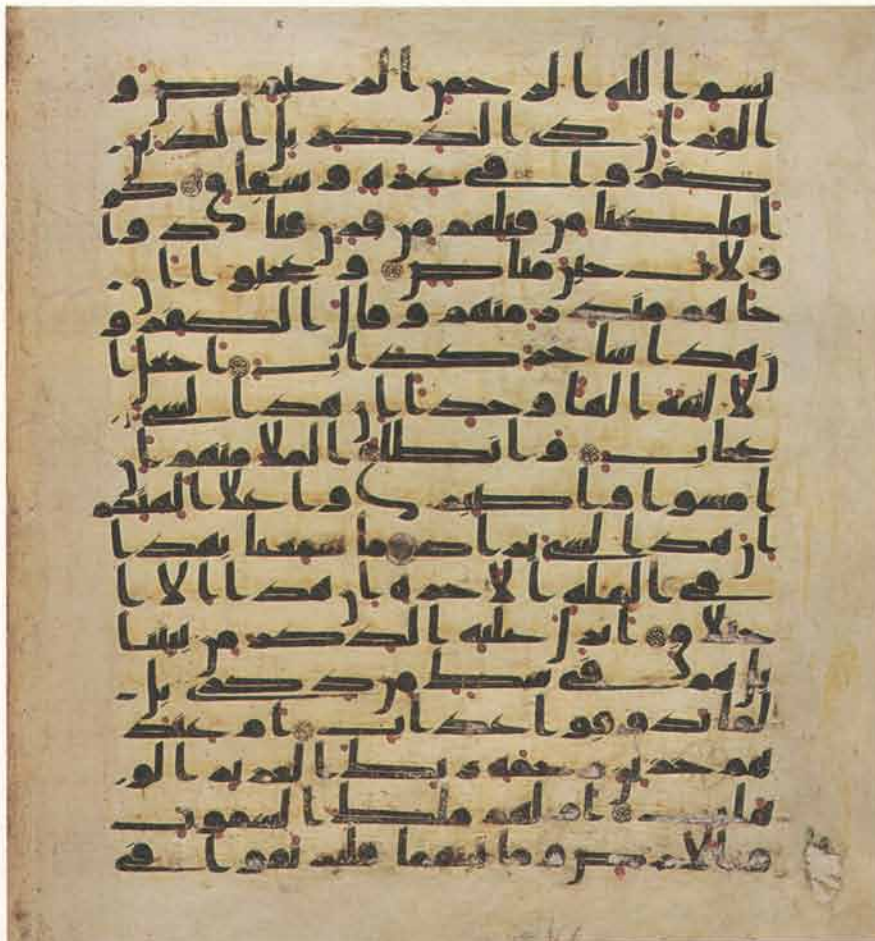 بسم الله الرحمن الرحيم ص و
القران ذي الذكر بل الذين
كفروا في عزة وشقاق كم
اهلكنا من قبلهم من قرن فنادوا
ولات حين مناص وعجبوا ان
جاهم منذر منهم وقال الكفرو
ن هذا ساحر كذاب اجعل ا
لالهة الها وحدا ان هذا لشي
عجاب وانطلق الملا منهم ان
امشوا واصبروا على الهتكم
ان هذا لشي يراد ما سمعنا بهذا
في الملة الاخرة ان هذا الا ا
ختلق انزل عليه الذكر من بيننا
بل هم في شك من ذكري بل
لما يذوقوا عذاب ام عند
هم خزين رحمة ربك العزيز الو
هاب ام لهم ملك السموت
والارض وما بينهما فليرتقوا في